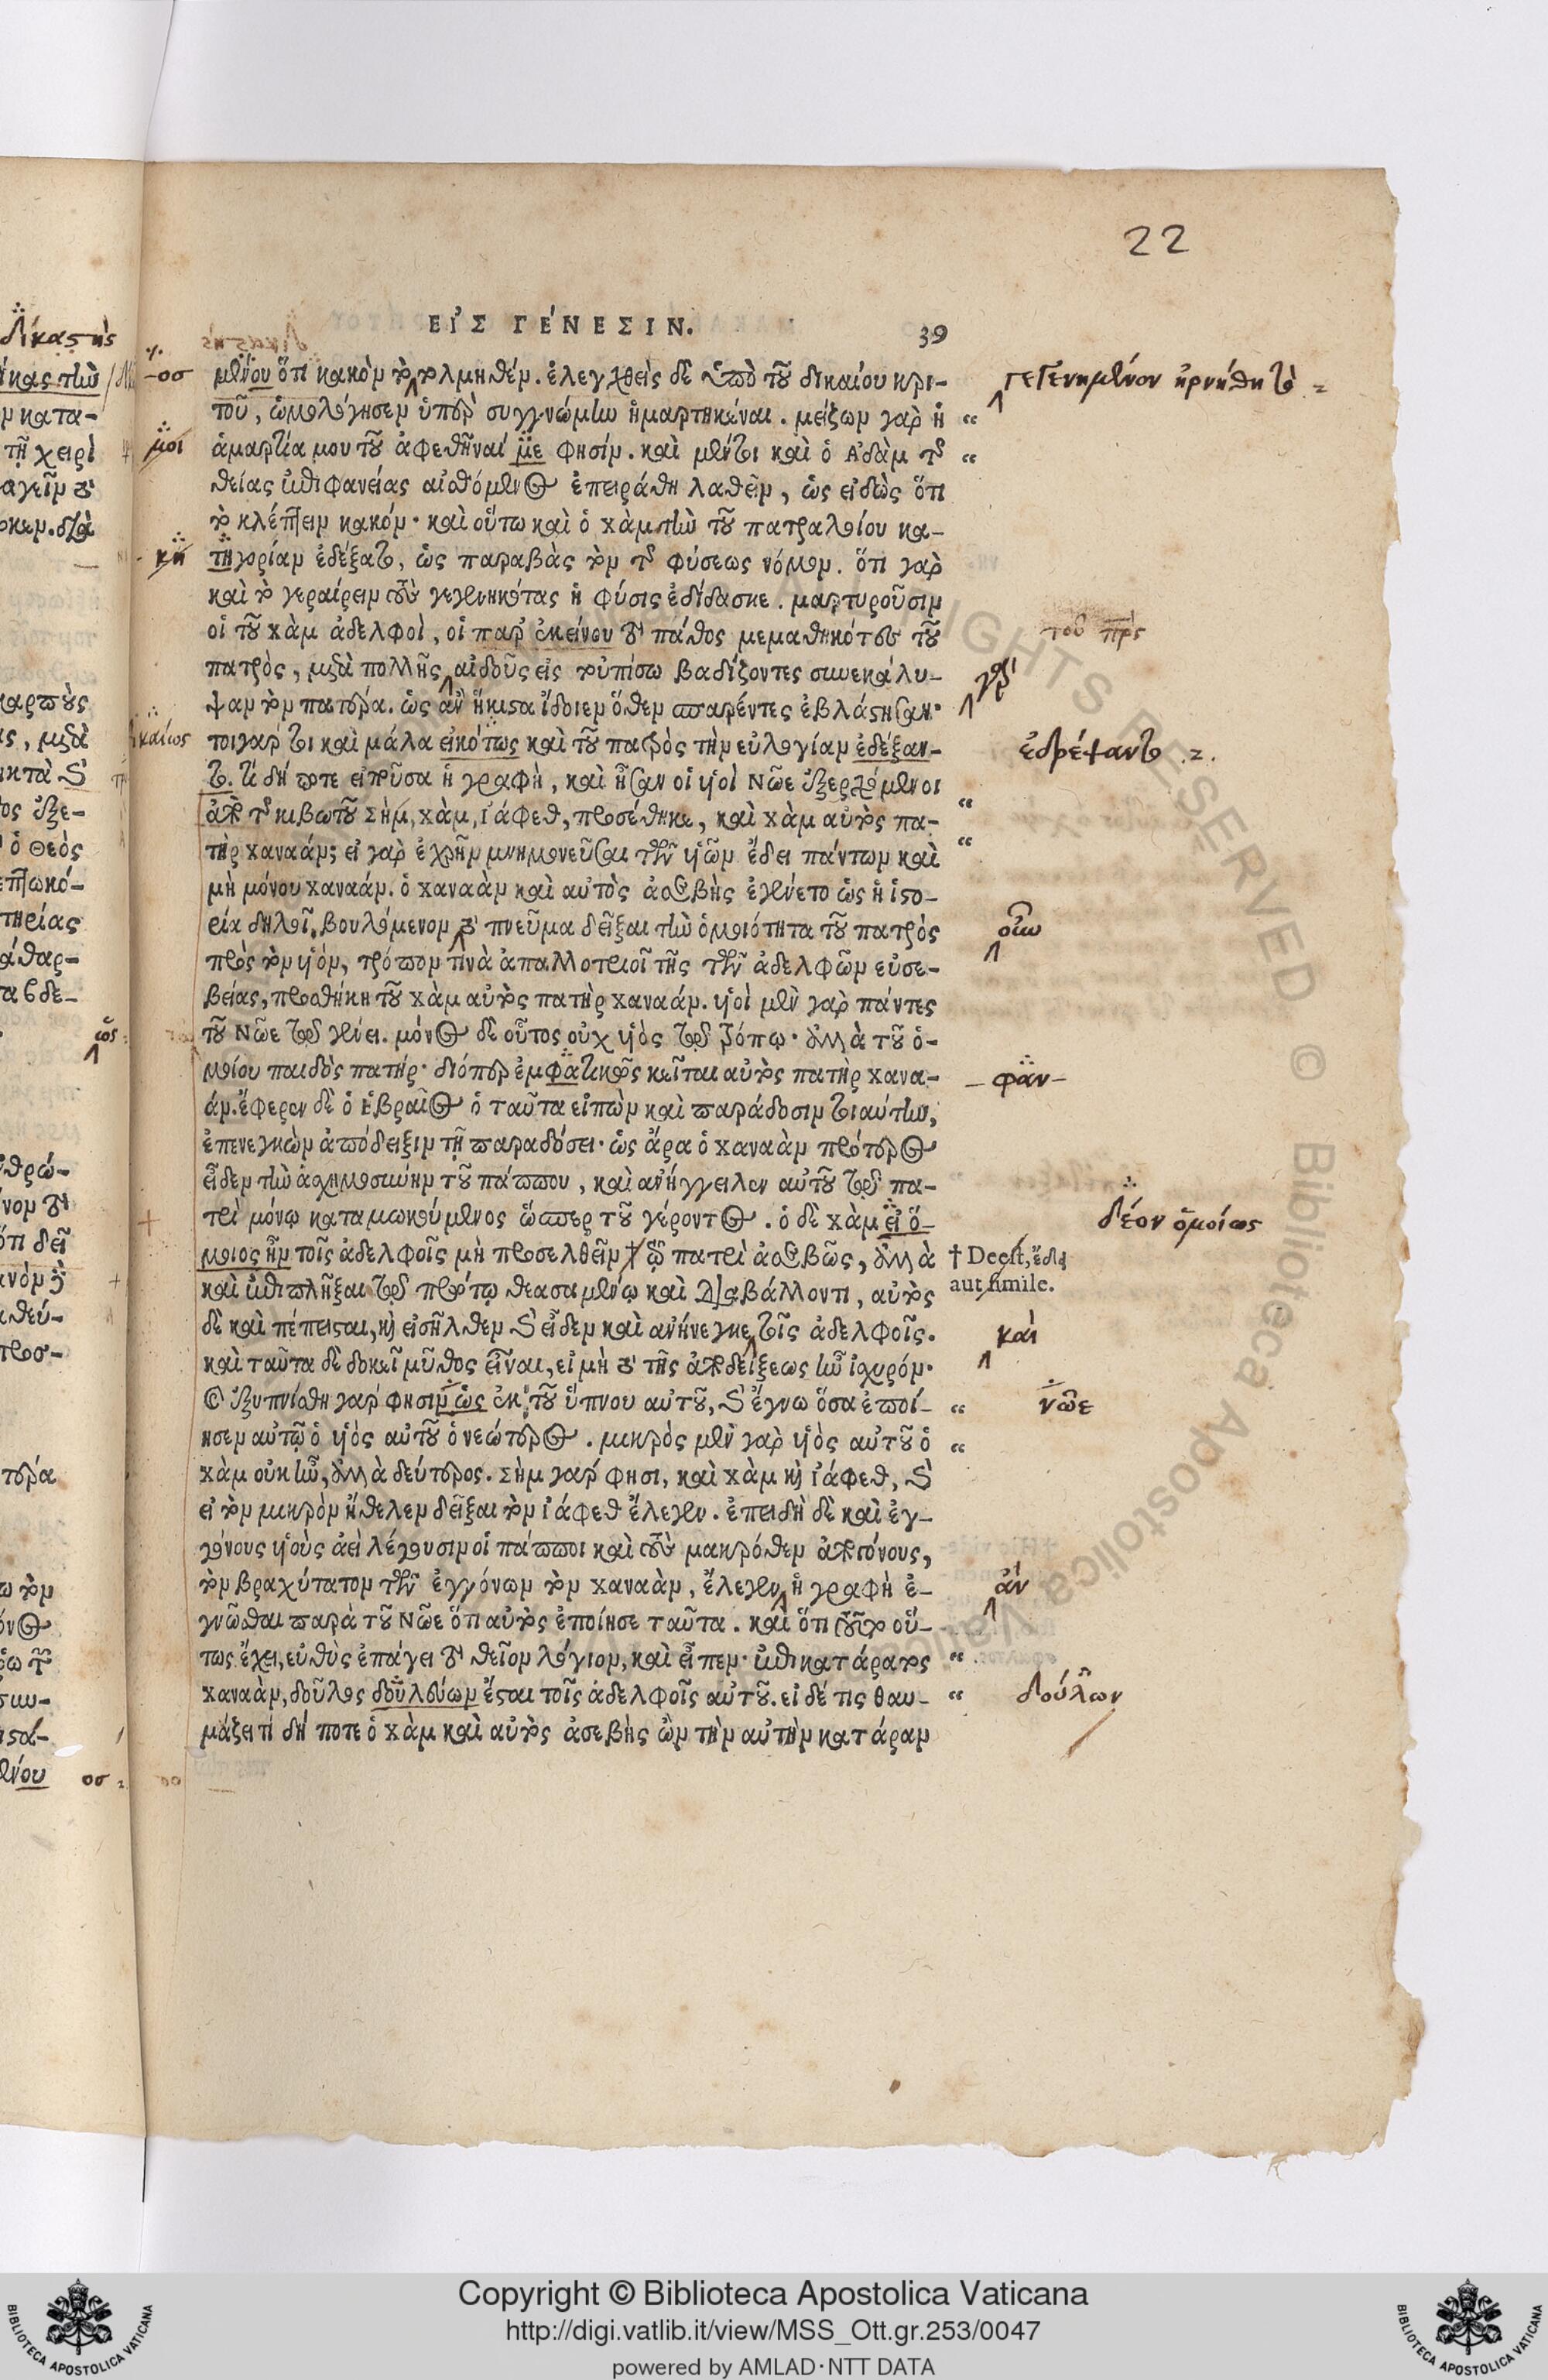 22
ΕΙ᾽Σ ΓΕ´ΝΕΣΙΝ. 39
μένου ὅτι κακὸν τὸ τολμηθέν. ἐλεγχθεὶς δὲ ὑπὸ τοῦ δικαίου κρι-
τοῦ, ὡμολόγησεν ὑπὲρ συγγνώμην ἡμαρτηκέναι. μείζων γὰρ ἡ
ἁμαρτία μου τοῦ ἀφεθῆναί με φησίν. καὶ μέντοι καὶ ὁ Ἀδὰμ τῆς
θείας ἐπιφανείας αἰσθόμενος ἐπειράθη λαθεῖν, ὡς εἰδὼς ὅτι
τὸ κλέπτειν κακόν· καὶ οὕτω καὶ ὁ χὰμ τὴν τοῦ πατραλοίου κα-
τηγορίαν ἐδέξατο, ὡς παραβὰς τὸν τῆς φύσεως νόμον. ὅτι γὰρ
καὶ τὸ γεραίρειν τοὺς γεγεννηκότας ἡ φύσις ἐδίδασκε. μαρτυροῦσιν
οἱ τοῦ χὰμ ἀδελφοὶ, οἱ παρ᾽ ἐκείνου τὸ πάθος μεμαθηκότες τοῦ
πατρὸς, μετὰ πολλῆς αἰδοῦς εἰς τοὐπίσω βαδίζοντες συνεκάλυ-
ψαν τὸν πατέρα. ὡς ἂν ἥκιστα ἴδοιεν ὅθεν σπαρέντες ἐβλάστησαν·
τοιγάρ τοι καὶ μάλα εἰκότως καὶ τοῦ πατρὸς τὴν εὐλογίαν ἐδέξαν-
το. τί δή ποτε εἰποῦσα ἡ γραφὴ, καὶ ἦσαν οἱ υἱοὶ Νῶε ἐξερχόμενοι
ἀπὸ τῆς κιβωτοῦ Σὴμ, χὰμ, ἰάφεθ, προσέθηκε, καὶ χὰμ αὐτὸς πα-
τὴρ χαναάν; εἰ γὰρ ἐχρῆν μνημονεῦσαι τῶν υἱῶν ἔδει πάντων καὶ
μὴ μόνου χαναάν. ὁ χαναὰν καὶ αὐτὸς ἀσεβὴς ἐγένετο ὡς ἡ ἱστο-
ρία δηλοῖ. βουλόμενον τὸ πνεῦμα δεῖξαι τὴν ὁμοιότητα τοῦ πατρὸς
πρὸς τὸν υἱόν, τρόπον τινὰ ἀπαλλοτριοῖ τῆς τῶν ἀδελφῶν εὐσε-
βείας, προσθήκη τοῦ χὰμ αὐτὸς πατὴρ χαναάν. υἱοὶ μὲν γὰρ πάντες
τοῦ Νῶε τῷ γένει. μόνος δὲ οὗτος οὐχ υἱὸς τῷ τρόπῳ· ἀλλὰ τοῦ ὁ-
μοίου παιδὸς πατήρ· διόπερ ἐμφατικῶς κεῖται αὐτὸς πατὴρ χανα-
άν. ἔφερεν δὲ ὁ ἑβραῖος ὁ ταῦτα εἰπὼν καὶ παράδοσιν τοιαύτην,
ἐπενεγκὼν ἀπόδειξιν τῇ παραδόσει· ὡς ἄρα ὁ χαναὰν πρότερος
εἶδεν τὴν ἀσχημοσύνην τοῦ πάππου, καὶ ἀνήγγειλεν αὐτοῦ τῷ πα-
τρὶ μόνῳ καταμωκούμενος ὥσπερ τοῦ γέροντος. ὁ δὲ χὰμ εἰ ὅ-
μοιος ἦν τοῖς ἀδελφοῖς μὴ προσελθεῖν † τῷ πατρὶ ἀσεβῶς, ἀλλὰ
καὶ ἐπιπλῆξαι τῷ πρώτῳ θεασαμένῳ καὶ διαβάλλοντι, αὐτὸς
δὲ καὶ πέπεισται, καὶ εἰσῆλθεν καὶ εἶδεν καὶ ἀνήνεγκε τοῖς ἀδελφοῖς.
καὶ ταῦτα δὲ δοκεῖ μῦθος εἶναι, εἰ μὴ τὸ τῆς ἀποδείξεως ἦν ἰσχυρόν·
ἐξυπνίσθη γάρ φησιν ὡς ἐκ τοῦ ὕπνου αὐτοῦ, καὶ ἔγνω ὅσα ἐποί-
ησεν αὐτῷ ὁ υἱὸς αὐτοῦ ὁ νεώτερος. μικρὸς μὲν γὰρ υἱὸς αὐτοῦ ὁ
χὰμ οὐκ ἦν, ἀλλὰ δεύτερος. Σὴμ γάρ φησι, καὶ χὰμ καὶ ἰάφεθ, καὶ
εἰ τὸν μικρὸν ἤθελεν δεῖξαι τὸν ἰάφεθ ἔλεγεν. ἐπειδὴ δὲ καὶ ἐγ-
γόνους υἱοὺς ἀεὶ λέγουσιν οἱ πάπποι καὶ τοὺς μακρόθεν ἀπογόνους,
τὸν βραχύτατον τῶν ἐγγόνων τὸν χαναὰν, ἔλεγεν ἡ γραφὴ ἐ-
γνῶσθαι παρὰ τοῦ Νῶε ὅτι αὐτὸς ἐποίησε ταῦτα. καὶ ὅτι τοῦτο οὕ-
τως ἔχει, εὐθὺς ἐπάγει τὸ θεῖον λόγιον, καὶ εἶπεν· ἐπικατάρατος
χαναὰν, δοῦλος δουλεύων ἔσται τοῖς ἀδελφοῖς αὐτοῦ. εἰ δέ τις θαυ-
μάζει τί δή ποτε ὁ χὰμ καὶ αὐτὸς ἀσεβὴς ὢν τὴν αὐτὴν κατάραν
-οσ
μοι
κη
καίως
γεγενημένον ἠρνήθη τὸ
τοῦ πρς
ἐδρέψαντο
οὖν
-φαν-
δέον ὁμοίως
† Deest, ἔδει
aut simile.
καὶ
νῶε
ἂν
δούλων
Copyright © Biblioteca Apostolica Vaticana
http://digi.vatlib.it/view/MSS_Ott.gr.253/0047
powered by AMLAD·NTT DATA
BIBLIOTECA APOSTOLICA VATICANA
BIBLIOTECA APOSTOLICA VATICANA